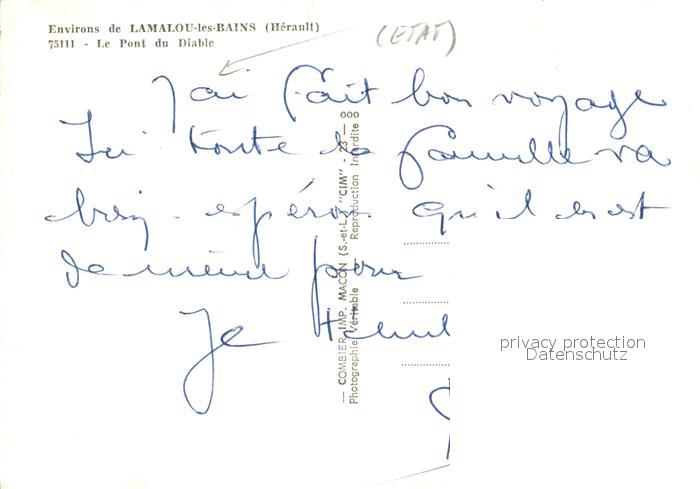 Environs de LAMALOU-les-BAINS (Hérault)
75111 - Le Pont du Diable
(ETAT)
J'ai fait bon voyage
Ici toute la famille va
bien - espérons qu'il en est
de même pour
Je
— COMBIER IMP. MACON (S.-et-L.) "CIM" - 23 —
Photographie Véritable Reproduction Interdite
privacy protection
Datenschutz